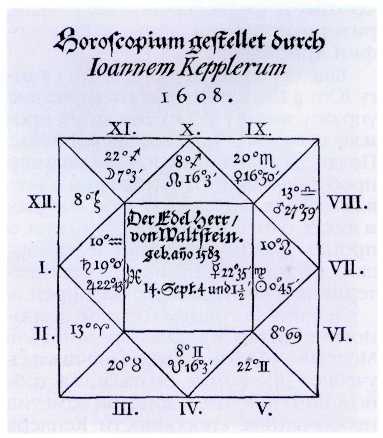 Horoscopium gestellet durch
Ioannem Kepplerum
1608.
XI. X. IX.
22°♐ 8°♐ 20°♏
☽7°3' ☊16°3' ♀16°50'
XII. 8°♑ 13°♎ VIII.
♂27°59'
Der Edel Herr/
von Waltstein.
geb. año 1583
14. Sept. 4 und 1½'
10°♒ 10°♌
I. ♄19°0' ♃22°43' ♓ ☿22°35' ♍ ☉0°45' VII.
II. 13°♈ 8°♋ VI.
20°♉ 8°♊ 22°♊
☋16°3'
III. IV. V.